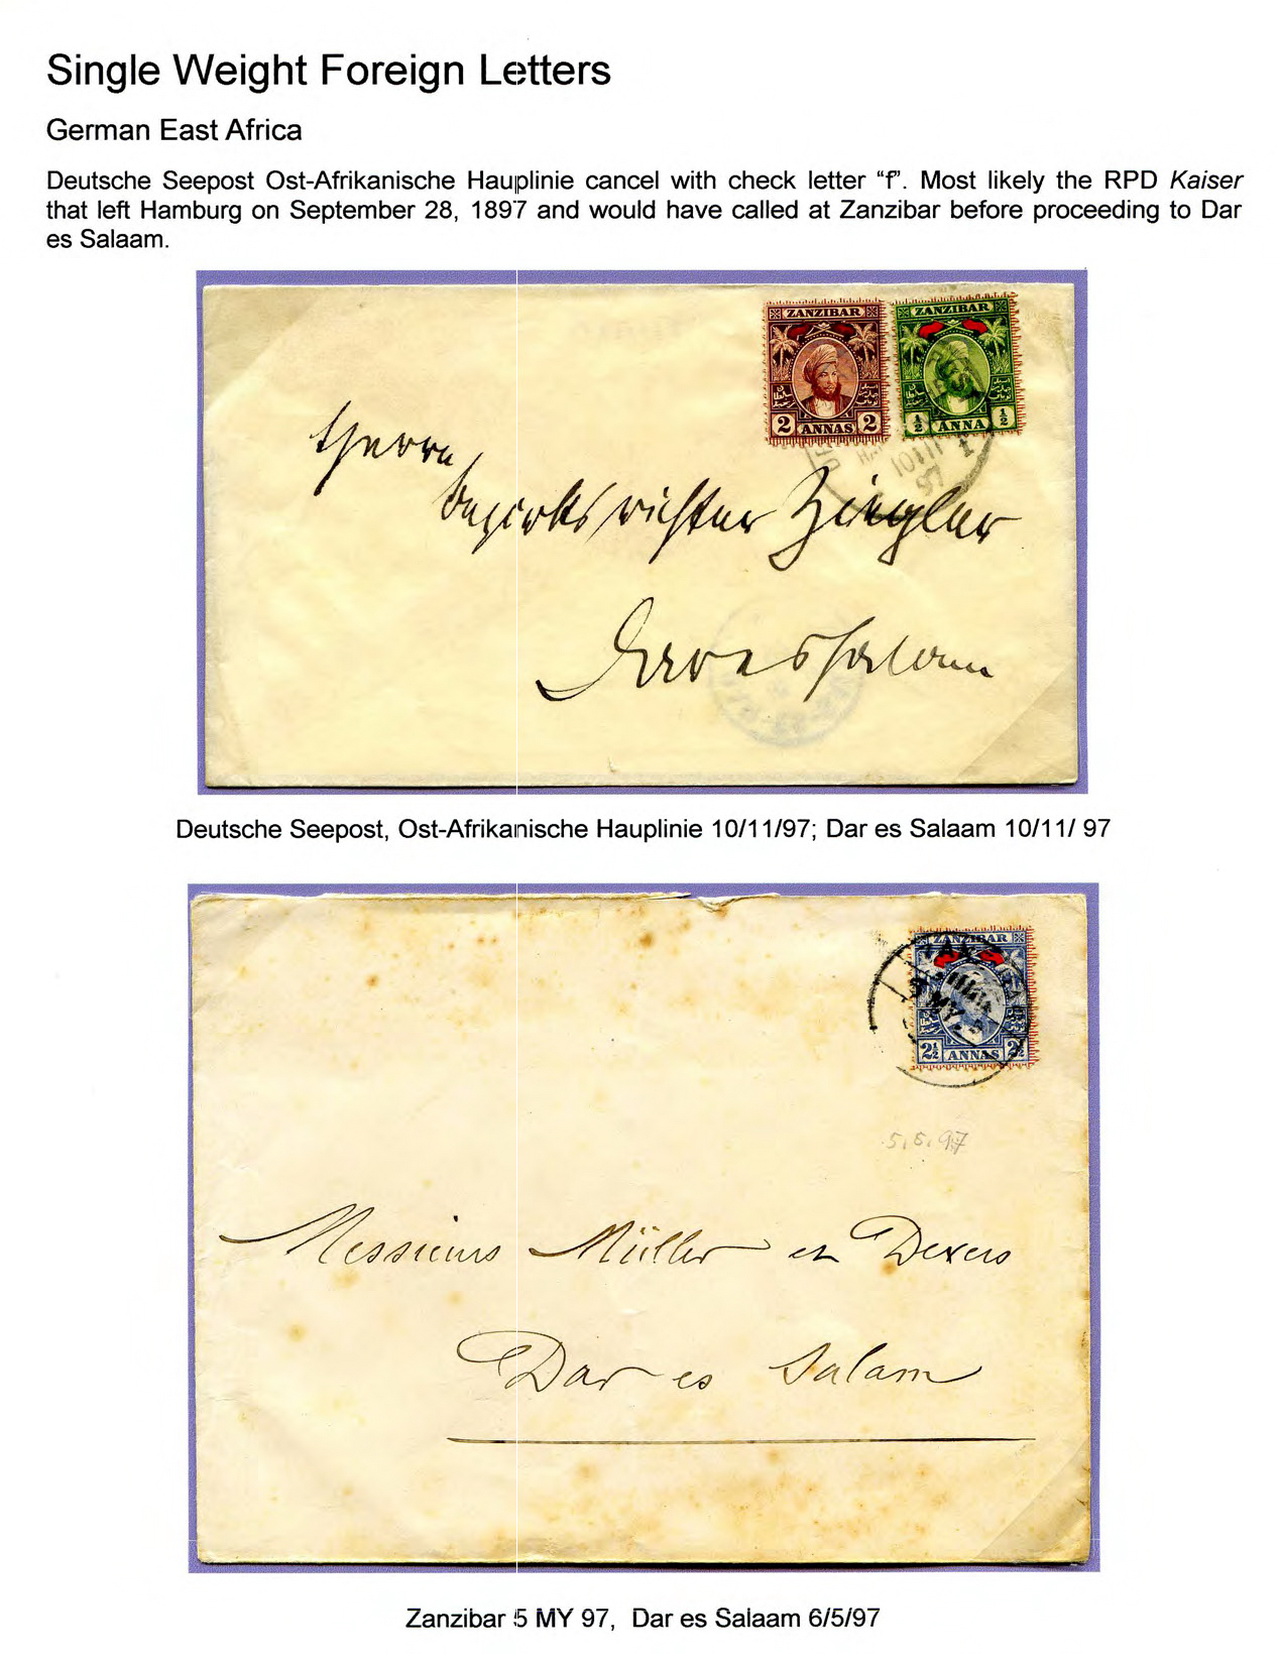 Single Weight Foreign Letters
German East Africa
Deutsche Seepost Ost-Afrikanische Hauplinie cancel with check letter “f”. Most likely the RPD Kaiser
that left Hamburg on September 28, 1897 and would have called at Zanzibar before proceeding to Dar
es Salaam.
ZANZIBAR
2 ANNAS 2
ZANZIBAR
½ ANNA ½
10 11
97
f
Herrn
Bezirksrichter Ziegler
Daressalam
Deutsche Seepost, Ost-Afrikanische Hauplinie 10/11/97; Dar es Salaam 10/11/ 97
ZANZIBAR
2½ ANNAS 2½
MY
5.5.97
Messieurs Müller et Devers
Dar es Salam
Zanzibar 5 MY 97, Dar es Salaam 6/5/97